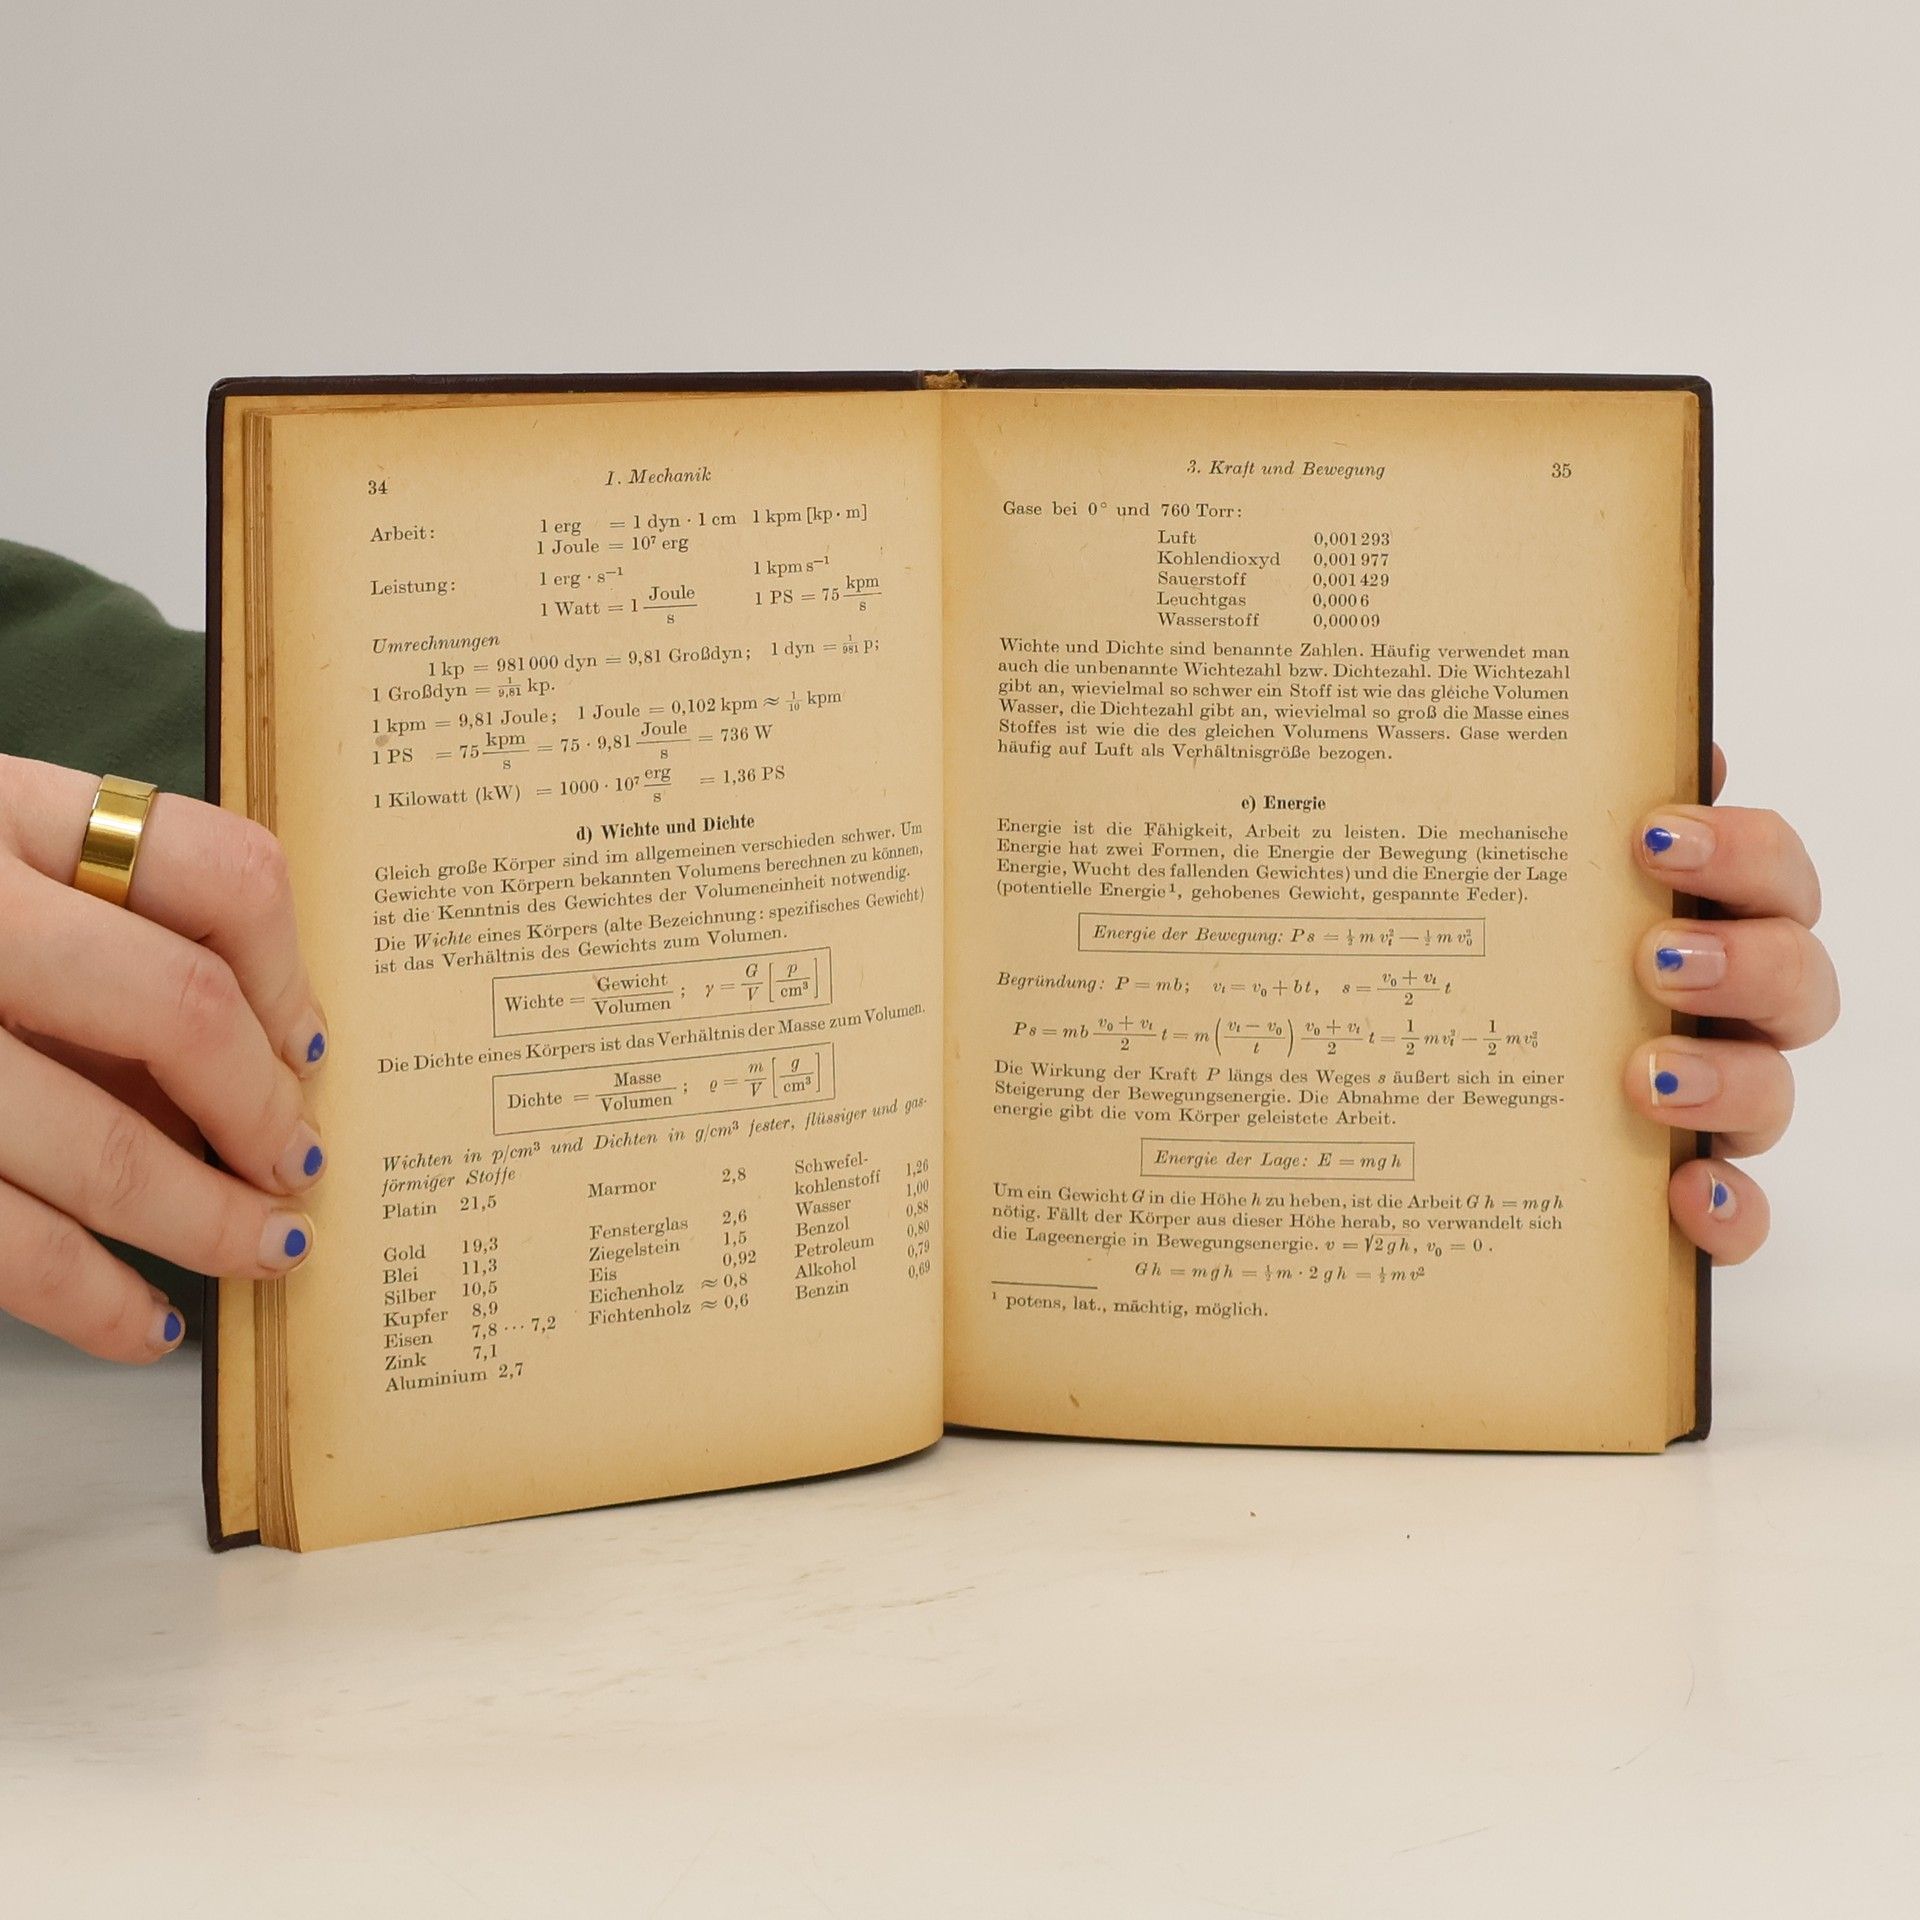 34
I. Mechanik
Arbeit: 1 erg = 1 dyn · 1 cm 1 kpm [kp · m]
1 Joule = 10⁷ erg
Leistung: 1 erg · s⁻¹ 1 kpm s⁻¹
1 Watt = 1 Joule/s 1 PS = 75 kpm/s
Umrechnungen
1 kp = 981000 dyn = 9,81 Großdyn; 1 dyn = 1/981 p;
1 Großdyn = 1/9,81 kp.
1 kpm = 9,81 Joule; 1 Joule = 0,102 kpm ≈ 1/10 kpm
1 PS = 75 kpm/s = 75 · 9,81 Joule/s = 736 W
1 Kilowatt (kW) = 1000 · 10⁷ erg/s = 1,36 PS
d) Wichte und Dichte
Gleich große Körper sind im allgemeinen verschieden schwer. Um
Gewichte von Körpern bekannten Volumens berechnen zu können,
ist die Kenntnis des Gewichtes der Volumeneinheit notwendig.
Die Wichte eines Körpers (alte Bezeichnung: spezifisches Gewicht)
ist das Verhältnis des Gewichts zum Volumen.
Wichte = Gewicht/Volumen ; γ = G/V [p/cm³]
Die Dichte eines Körpers ist das Verhältnis der Masse zum Volumen.
Dichte = Masse/Volumen ; ϱ = m/V [g/cm³]
Wichten in p/cm³ und Dichten in g/cm³ fester, flüssiger und gas-
förmiger Stoffe
Platin 21,5
Gold 19,3
Blei 11,3
Silber 10,5
Kupfer 8,9
Eisen 7,8 ··· 7,2
Zink 7,1
Aluminium 2,7
Marmor 2,8
Fensterglas 2,6
Ziegelstein 1,5
Eis 0,92
Eichenholz ≈ 0,8
Fichtenholz ≈ 0,6
Schwefel-
kohlenstoff 1,26
Wasser 1,00
Benzol 0,88
Petroleum 0,80
Alkohol 0,79
Benzin 0,69
3. Kraft und Bewegung
35
Gase bei 0° und 760 Torr:
Luft 0,001293
Kohlendioxyd 0,001977
Sauerstoff 0,001429
Leuchtgas 0,0006
Wasserstoff 0,00009
Wichte und Dichte sind benannte Zahlen. Häufig verwendet man
auch die unbenannte Wichtezahl bzw. Dichtezahl. Die Wichtezahl
gibt an, wievielmal so schwer ein Stoff ist wie das gleiche Volumen
Wasser, die Dichtezahl gibt an, wievielmal so groß die Masse eines
Stoffes ist wie die des gleichen Volumens Wassers. Gase werden
häufig auf Luft als Verhältnisgröße bezogen.
e) Energie
Energie ist die Fähigkeit, Arbeit zu leisten. Die mechanische
Energie hat zwei Formen, die Energie der Bewegung (kinetische
Energie, Wucht des fallenden Gewichtes) und die Energie der Lage
(potentielle Energie¹, gehobenes Gewicht, gespannte Feder).
Energie der Bewegung: P s = ½ m vₜ² — ½ m v₀²
Begründung: P = mb; vₜ = v₀ + bt, s = (v₀ + vₜ)/2 t
P s = mb (v₀ + vₜ)/2 t = m ((vₜ − v₀)/t) (v₀ + vₜ)/2 t = 1/2 m vₜ² − 1/2 m v₀²
Die Wirkung der Kraft P längs des Weges s äußert sich in einer
Steigerung der Bewegungsenergie. Die Abnahme der Bewegungs-
energie gibt die vom Körper geleistete Arbeit.
Energie der Lage: E = mg h
Um ein Gewicht G in die Höhe h zu heben, ist die Arbeit G h = mg h
nötig. Fällt der Körper aus dieser Höhe herab, so verwandelt sich
die Lageenergie in Bewegungsenergie. v = √2 g h, v₀ = 0 .
G h = mg h = ½ m · 2 g h = ½ m v²
¹ potens, lat., mächtig, möglich.